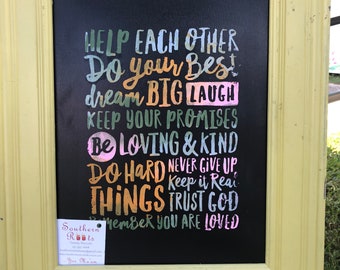 HELP EACH OTHER
DO your Best
dream BIG LAUGH
KEEP YOUR PROMISES
Be LOVING & KIND
DO HARD THINGS
NEVER GIVE UP
Keep it Real
TRUST GOD
Remember YOU ARE LOVED
Southern
Roots